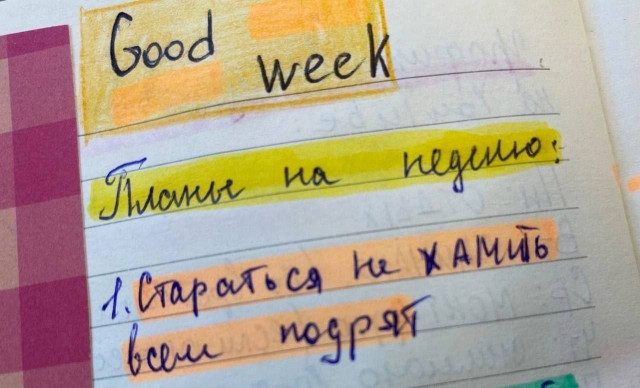 Good week
Планы на неделю:
1. Стараться не хамить
всем подрят